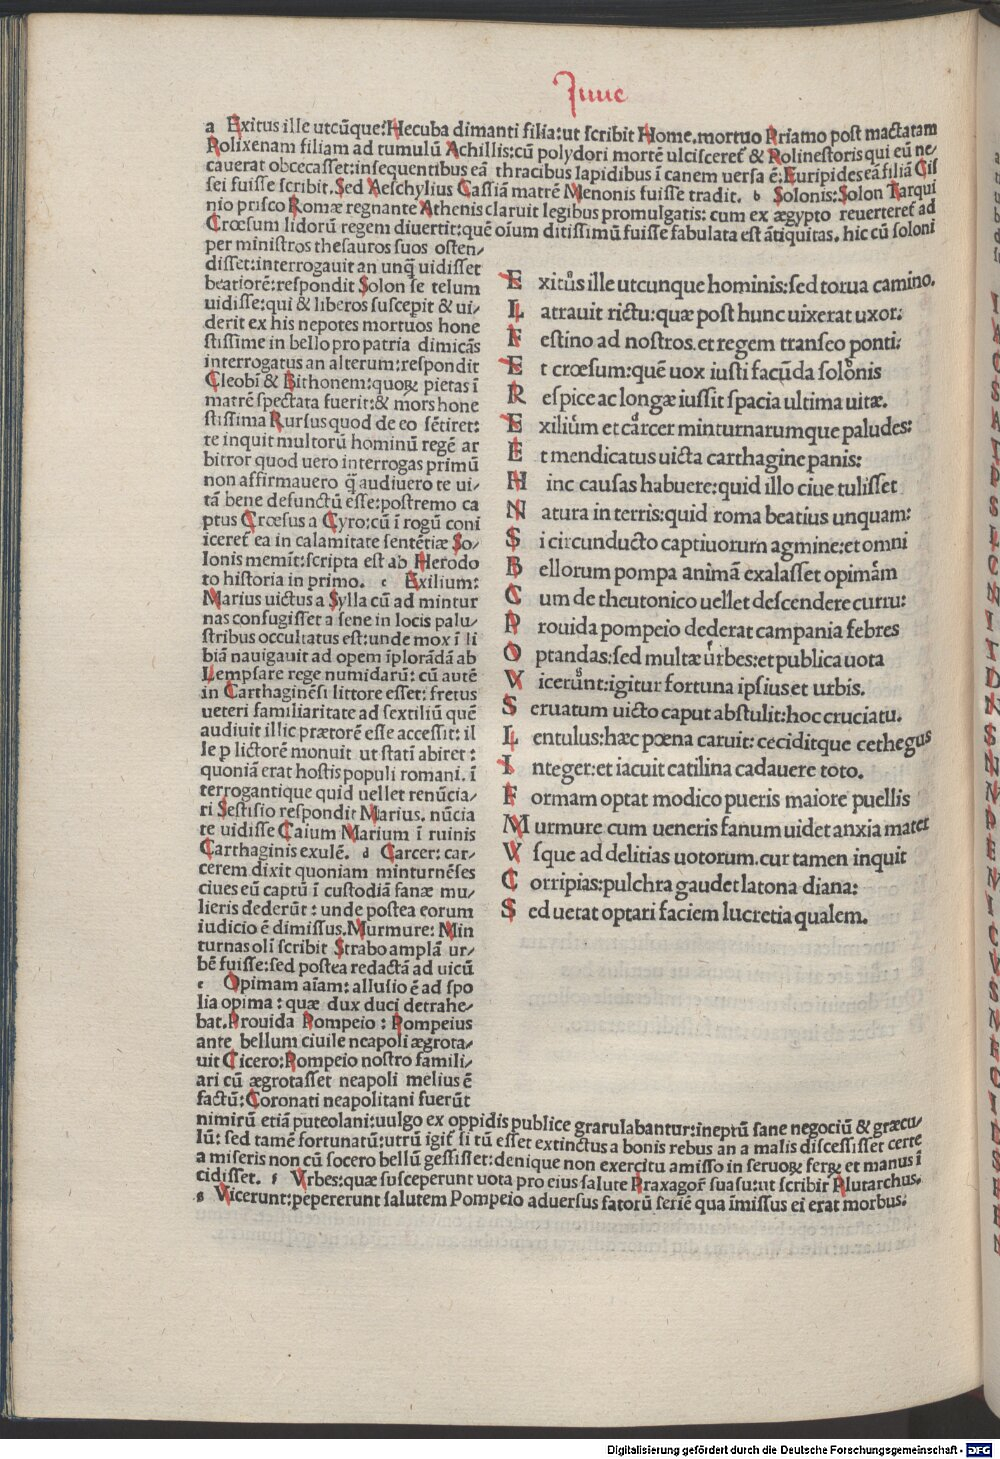 Iuue
a Exitus ille utcūque: Hecuba dimanti filia: ut scribit Home. mortuo Priamo post mactatam
Polixenam filiam ad tumulū Achillis: cū polydori mortē ulcisceret̄ & Polinestoris qui eū ne-
cauerat obcecasset: insequentibus eā thracibus lapidibus ī canem uersa ē: Euripides eā filiā Cis
sei fuisse scribit. Sed Aeschylius Cassiā matrē Menonis fuisse tradit. b Solonis: Solon Tarqui
nio prisco Romæ regnante Athenis claruit legibus promulgatis: cum ex ægypto reuerteret̄ ad
Crœsum lidorū regem diuertit: quē oīum ditissimū fuisse fabulata est ātiquitas. hic cū soloni
per ministros thesauros suos osten-
disset: interrogauit an unq̄ uidisset
beatiorē: respondit Solon se telum
uidisse: qui & liberos suscepit & ui-
derit ex his nepotes mortuos hone
stissime in bello pro patria dimicās
interrogatus an alterum: respondit
Cleobī & Bithonem: quoꝝ pietas ī
matrē spectata fuerit: & mors hone
stissima Rursus quod de eo sētiret:
te inquit multorū hominū regē ar
bitror quod uero interrogas primū
non affirmauero q̄ audiuero te ui-
tā bene defunctū esse: postremo ca
ptus Crœsus a Cyro: cū ī rogū coni
iceret̄ ea in calamitate sentētiæ So-
lonis memīt: scripta est ab Herodo
to historia in primo. c Exilium:
Marius uictus a Sylla cū ad mintur
nas confugisset a sene in locis palu-
stribus occultatus est: unde mox ī li
biā nauigauit ad opem īplorādā ab
Lempsare rege numidarū: cū autē
in Carthaginēsi littore esset: fretus
ueteri familiaritate ad sextiliū quē
audiuit illic prætorē esse accessit: il
le p̱ lictorē monuit ut statī abiret:
quoniā erat hostis populi romani. ī
terrogantique quid uellet renūcia-
ri Sestisio respondit Marius. nūcia
te uidisse Caium Marium ī ruinis
Carthaginis exulē. d Carcer: car-
cerem dixit quoniam minturnēses
ciues eū captū ī custodiā fanæ mu-
lieris dederūt: unde postea eorum
iudicio ē dimissus. Murmure: Min
turnas olī scribit Strabo amplā ur-
bē fuisse: sed postea redactā ad uicū
e Opimam aīam: allusio ē ad spo
lia opima: quæ dux duci detrahe-
bat. Prouida Pompeio: Pompeius
ante bellum ciuile neapoli ægrota-
uit Cicero: Pompeio nostro famili-
ari cū ægrotasset neapoli melius ē
factū: Coronati neapolitani fuerūt
nimirū etiā puteolani: uulgo ex oppidis publice grarulabantur: ineptū sane negociū & græcu-
lū: sed tamē fortunatū: utrū igit̄ si tū esset extinctus a bonis rebus an a malis discessisset certe
a miseris non cū socero bellū gessisset: denique non exercitu amisso in seruoꝝ ferꝝ et manus ī
cidisset. f Vrbes: quæ susceperunt uota pro eius salute Praxagor̄ suasu: ut scribir Plutarchus.
g Vicerunt: pepererunt salutem Pompeio aduersus fatorū seriē qua īmissus ei erat morbus.
Exitus ille utcunque hominis: sed torua camino.
Latrauit rictu: quæ post hunc uixerat uxor:
Festino ad nostros. et regem transeo ponti:
Et crœsum: quē uox iusti facūda solonis
Respice ac longæ iussit spacia ultima uitæ.
Exilium et carcer minturnarumque paludes:
Et mendicatus uicta carthagine panis:
Hinc causas habuere: quid illo ciue tulisset
Natura in terris: quid roma beatius unquam:
Si circunducto captiuorum agmine: et omni
Bellorum pompa animā exalasset opimam
Cum de theutonico uellet descendere curru:
Prouida pompeio dederat campania febres
Optandas: sed multæ urbes: et publica uota
Vicerunt: igitur fortuna ipsius et urbis.
Seruatum uicto caput abstulit: hoc cruciatu.
Lentulus: hæc pœna caruit: ceciditque cethegus
Integer: et iacuit catilina cadauere toto.
Formam optat modico pueris maiore puellis
Murmure cum ueneris fanum uidet anxia mater
Vsque ad delitias uotorum. cur tamen inquit
Corripias: pulchra gaudet latona diana:
Sed uetat optari faciem lucretia qualem.
Digitalisierung gefördert durch die Deutsche Forschungsgemeinschaft - DFG